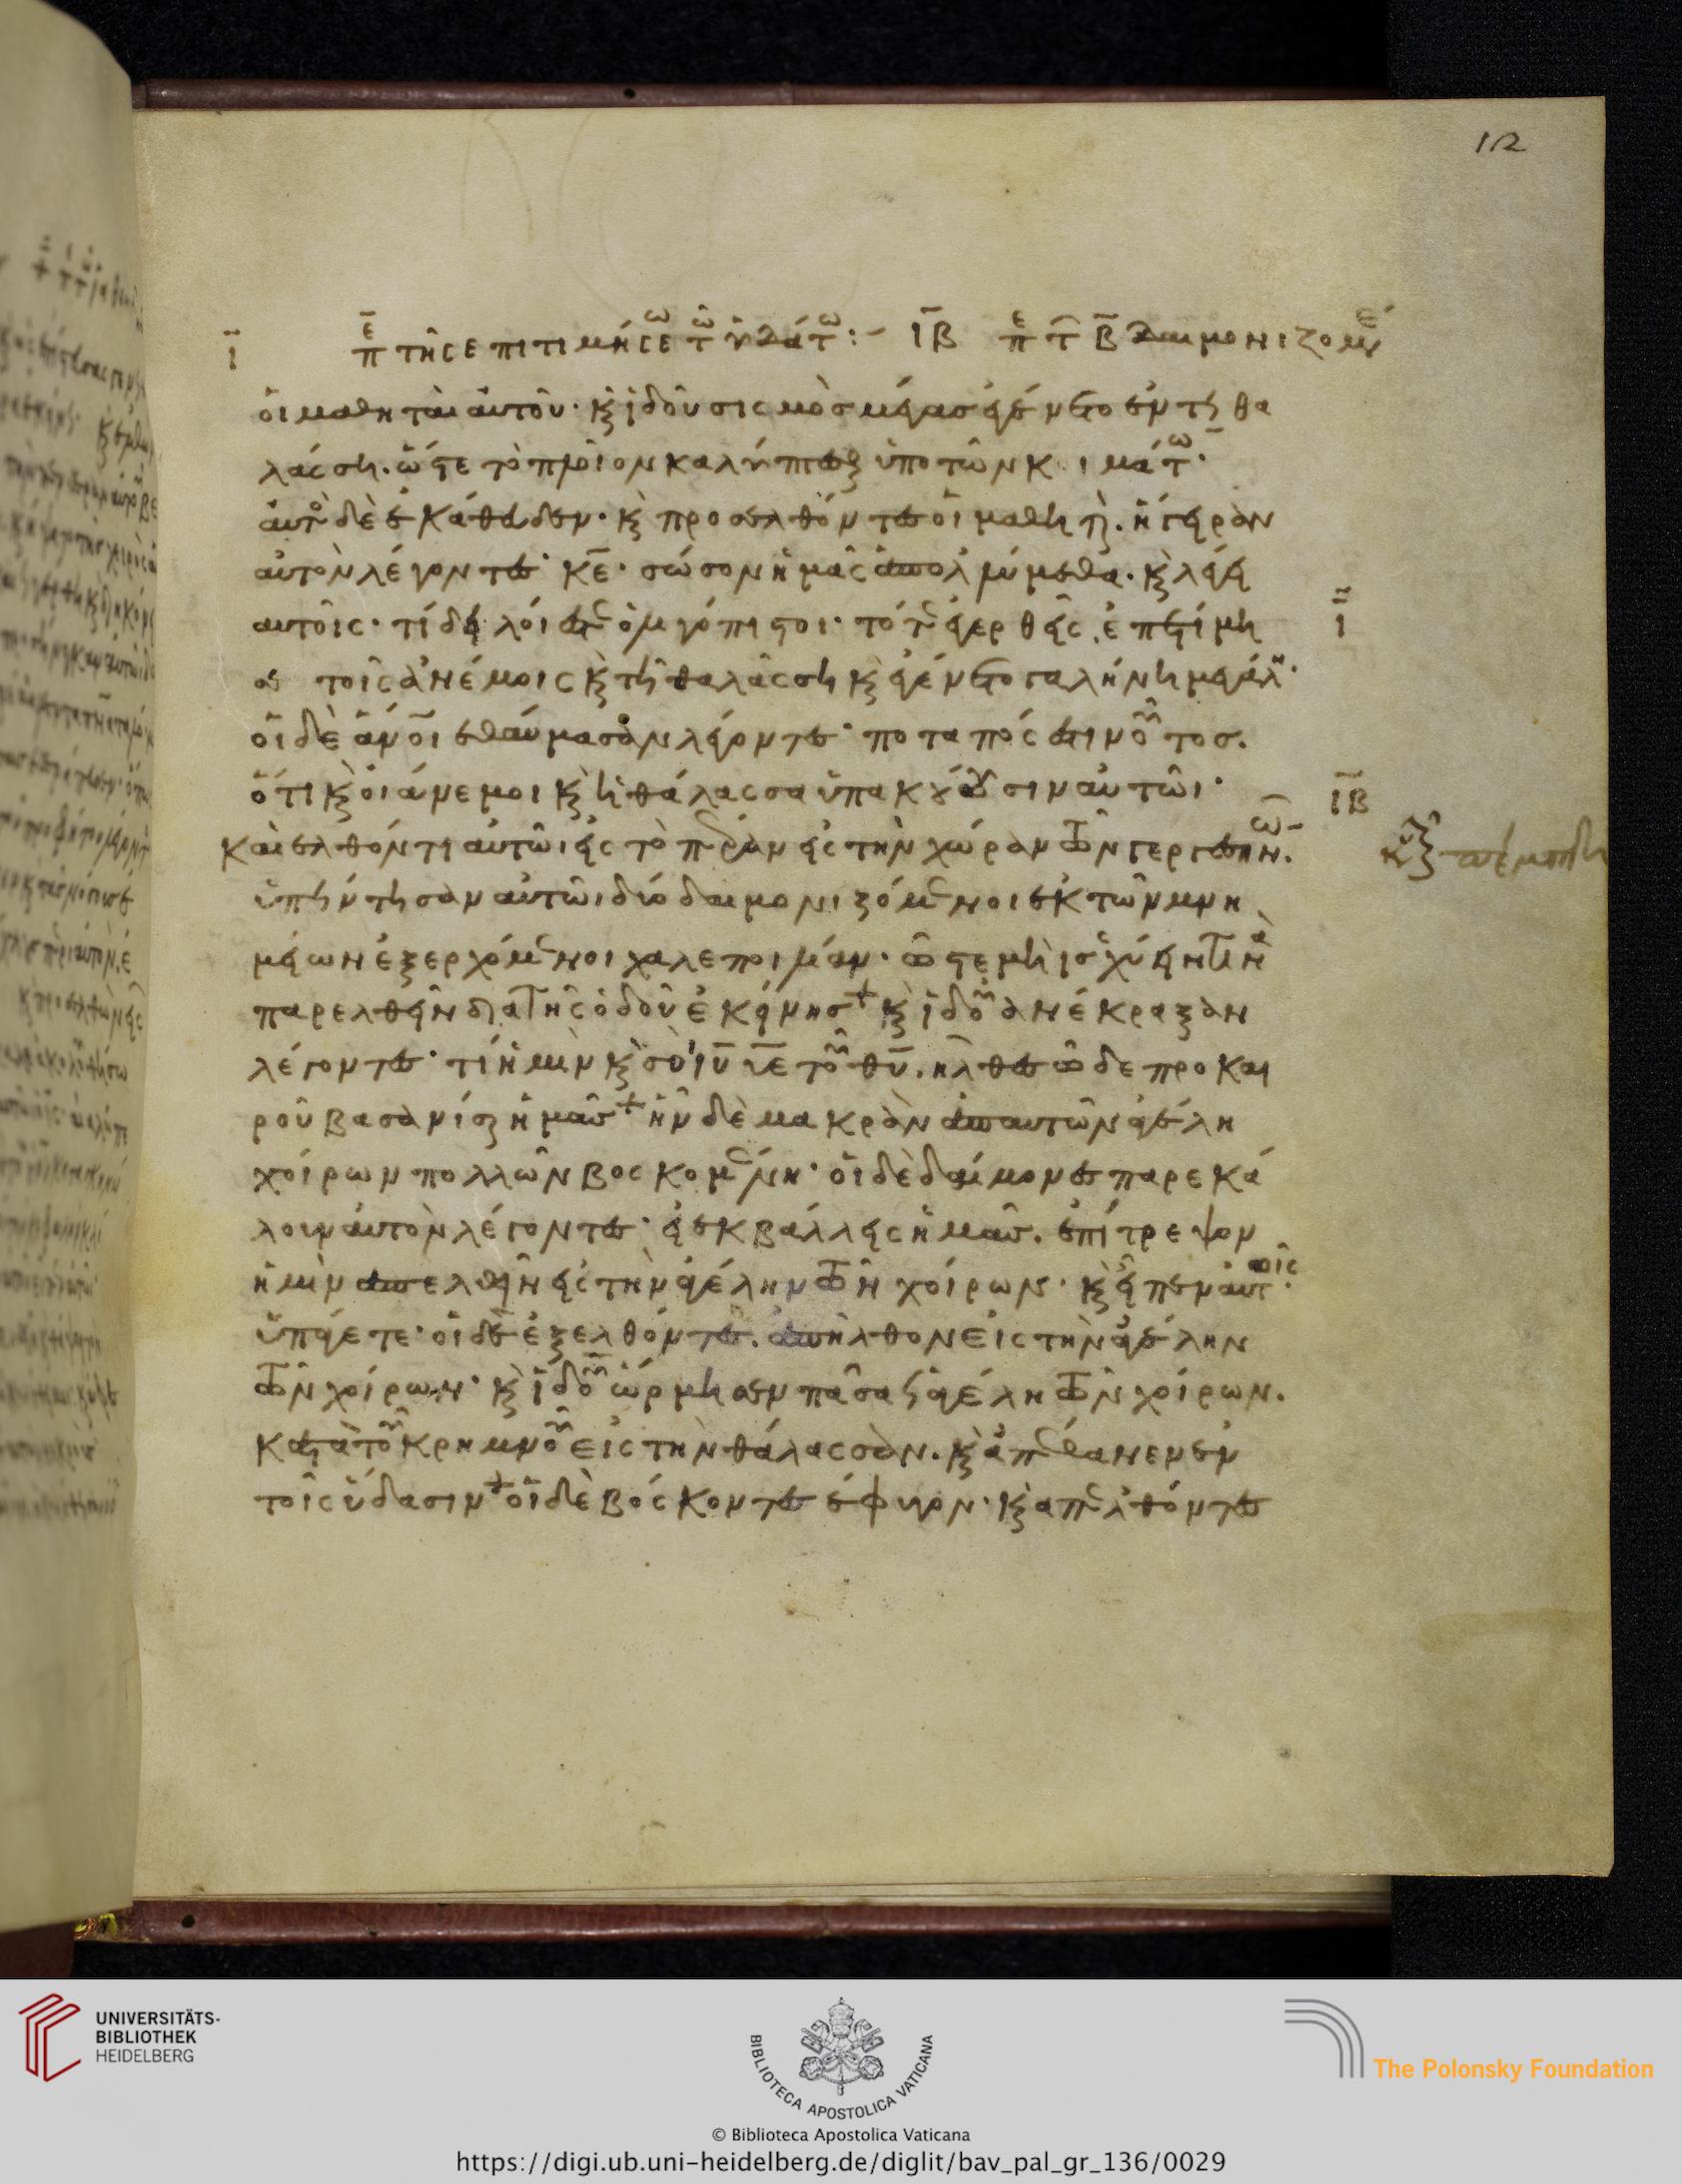 12
ι πε τῆς επιτιμήσεω τῶ ὑδάτω :– ιβ πε τ β δαιμονιζομεν
οἱ μαθηταὶ αὐτοῦ· κ ἰδοῦ σισμὸσ μέγασ ἐγένετο ἐν τῆ θα
λάσση. ὥστε τὸ πλοῖον καλύπτεσθαι ὑπὸ τῶν κ ι μάτω.
αὐτος δὲ ἐκάθευδεν· κ προσελθόντες οἱ μαθηται. ἤγειραν
αὐτὸν λέγοντες· κε· σῶσον ἡμᾶς ἀπολύμεθα. κ λέγει
αυτοῖς· τί δειλοί ἐστε ὀλιγόπιστοι· τότε ἐγερθεὶς ἐπετίμη ι
σε τοῖς ἀνέμοις κ τῆ θαλάσση κ ἐγένετο γαλήνη μεγάλη·
οἱ δὲ ἀνοι ἐθαύμασαν λέγοντες· ποταπός ἐστιν οὗτοσ.
ὅτι κ οἱ ἀνεμοι κ ἡ θάλασσα ὑπακούουσιν αὐτῶι· ιβ
Και ελθόντι αυτῶι εἰς τὸ πέραν εἰς τὴν χώραν τῶν γεργεσηνῶ.
ὑπήντησαν αὐτῶι δύο δαιμονιζόμενοι ἐκ τῶν μνη
μείων ἐξερχόμενοι χαλεποι λίαν· ὥστε μὴ ἰσχύειν τινὰ
παρελθεῖν διὰ τῆς ὁδοῦ ἐκείνησ + κ ἰδοῦ ἀνέκραξαν
λέγοντες· τί ἡμὶν κ σὸι ιυ υε τοῦ θυ. ηλθες ὧδε προ και
ροῦ βασανίσαι ἡμᾶσ + ἦν δὲ μακρὰν ἀπ αυτῶν ἀγέλη
χοίρων πολλῶν βοσκομένη· οἱ δὲ δαίμονες παρεκά
λουν ἀυτὸν λέγοντες· εἰ ἐκβάλλεις ἡμᾶσ. ἐπίτρεψον
ἡμὶν ἀπελθεῖν εἰς τὴν ἀγέλην τῶν χοίρων. κ εἶπεν αὐτοῖς.
ὑπάγετε· οἱ δὲ ἐξελθόντες. ἀπῆλθον εἰς τὴν ἀγέλην
τῶν χοίρων· κ ἰδοῦ ὥρμησεν πᾶσα ἡ ἀγέλη τῶν χοίρων.
κατὰ τοῦ κρημνοῦ εἰς τὴν θάλασσαν. κ ἀπέθανεν ἐν
τοῖς ὕδασιν + οἱ δὲ βόσκοντες ἔφυγον· κ απελθόντες
UNIVERSITÄTS-
BIBLIOTHEK
HEIDELBERG
BIBLIOTECA APOSTOLICA VATICANA
© Biblioteca Apostolica Vaticana
The Polonsky Foundation
https://digi.ub.uni-heidelberg.de/diglit/bav_pal_gr_136/0029